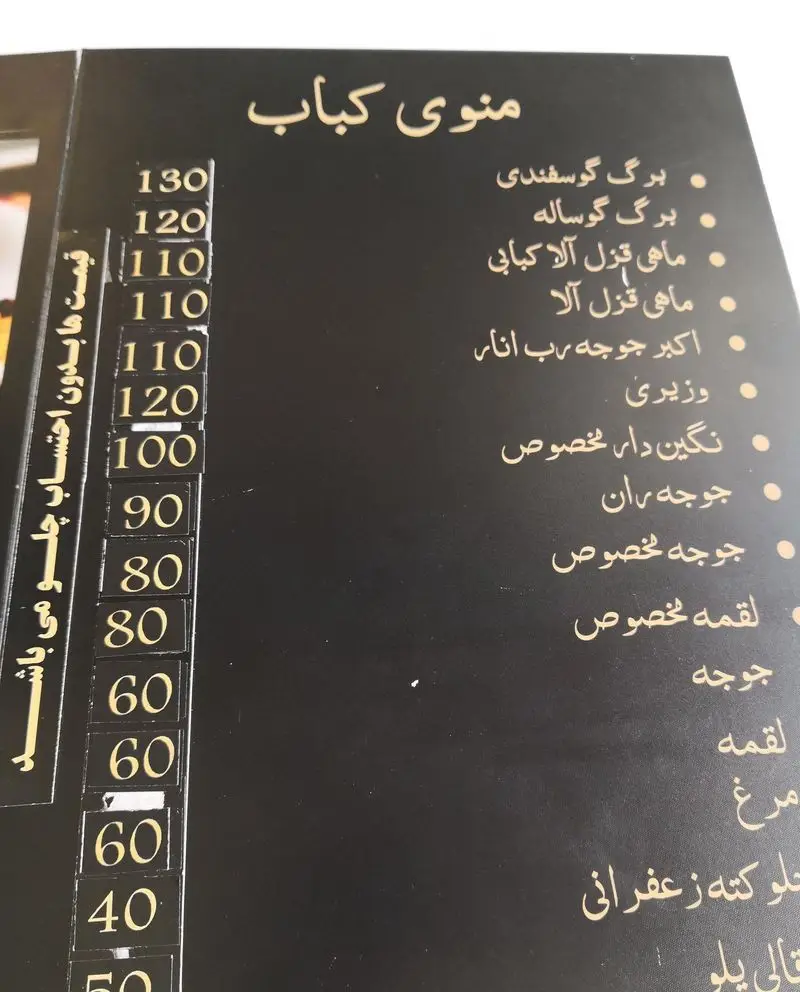 منوی کباب
برگ گوسفندی 130
برگ گوساله 120
ماهی قزل آلا کبابی 110
ماهی قزل آلا 110
اکبر جوجه رب انار 110
وزیری 120
نگین دار مخصوص 100
جوجه ران 90
جوجه مخصوص 80
لقمه مخصوص 80
جوجه 60
لقمه 60
مرغ 60
چلو کته زعفرانی 40
قالی پلو 50
قیمت ها بدون احتساب چلو می باشد